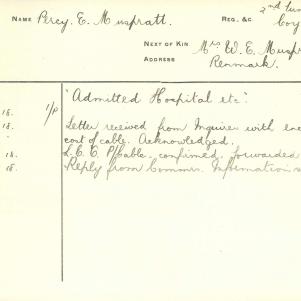 NAME Percy. E. Muspratt. REG. &C. 2nd
NEXT OF KIN Mrs W. E. Musp
ADDRESS Renmark.
"Admitted Hospital etc".
18. 1/P
18. Letter received from Inquirer with enc
cost of cable. Acknowledged.
18. L. C. C. P/Cable. confirmed. forwarded
18. Reply from Commr. Information